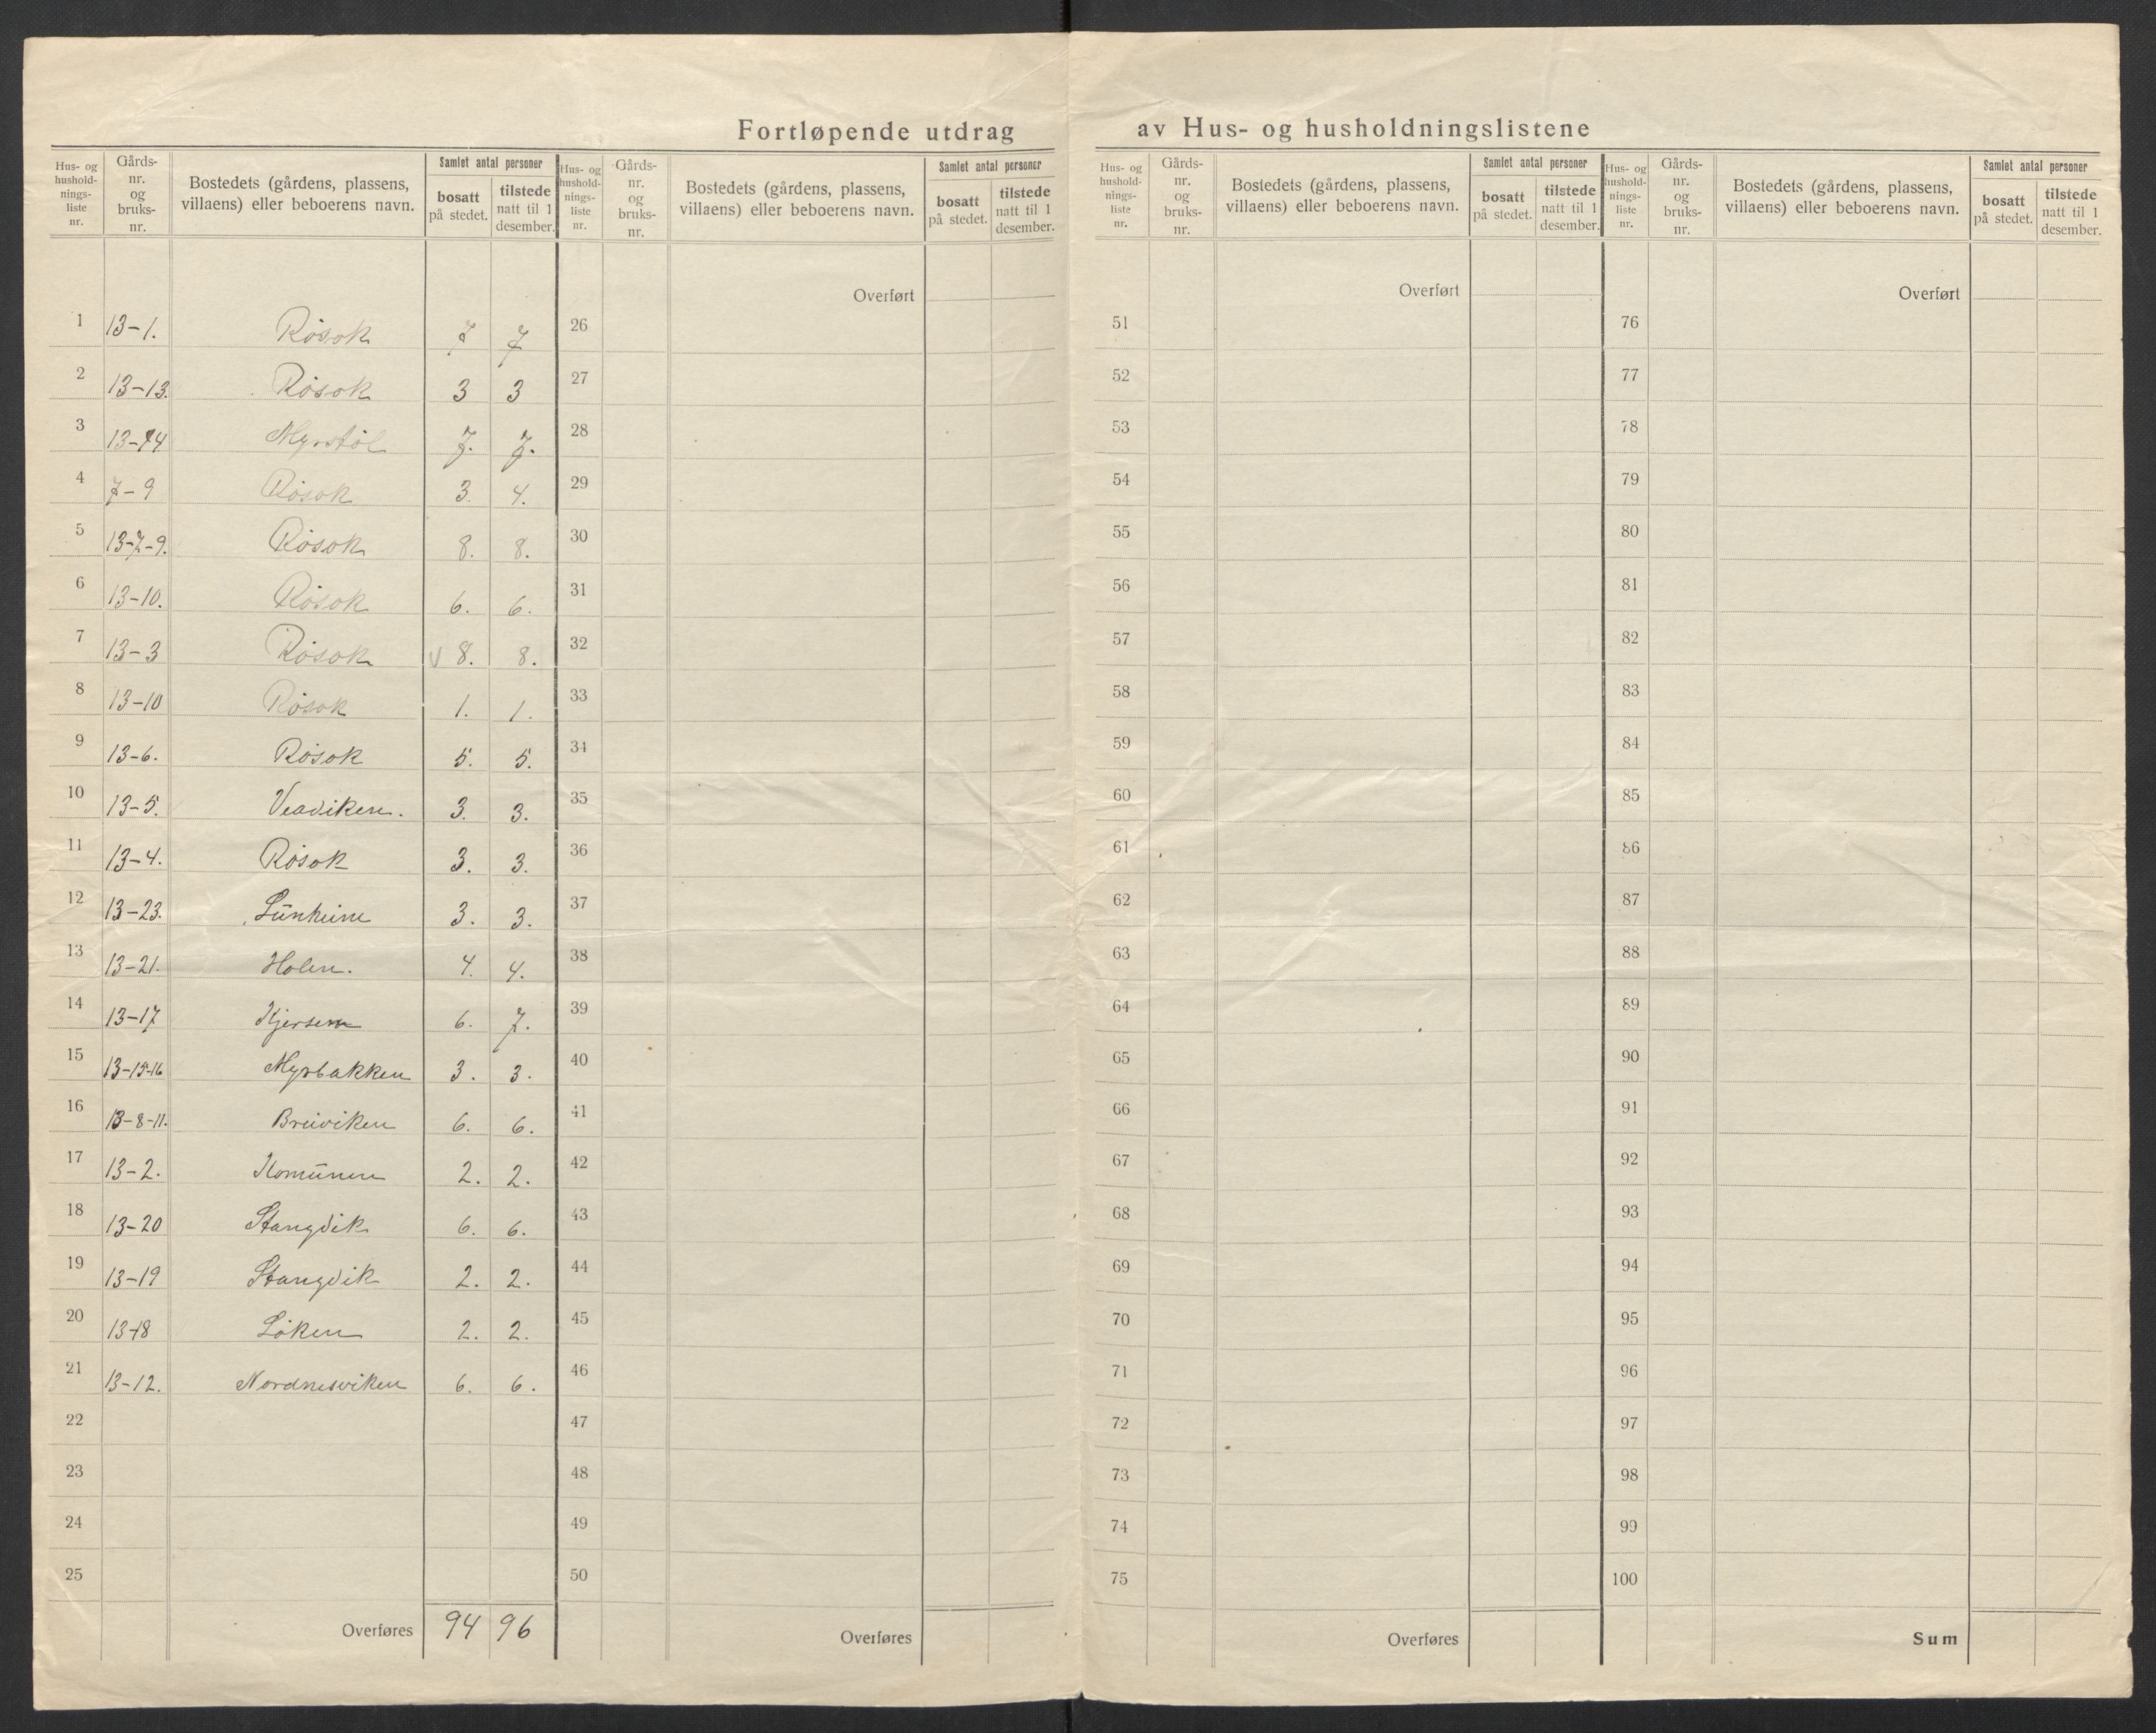 Fortløpende utdrag av Hus- og husholdningslistene
Hus- og hushold- nings- liste nr. | Gårds- nr. og bruks- nr. | Bostedets (gårdens, plassens, villaens) eller beboerens navn. | Samlet antal personer | bosatt på stedet. | tilstede natt til 1 desember.
Hus- og hushold- nings- liste nr. | Gårds- nr. og bruks- nr. | Bostedets (gårdens, plassens, villaens) eller beboerens navn. | Samlet antal personer | bosatt på stedet. | tilstede natt til 1 desember.
Hus- og hushold- nings- liste nr. | Gårds- nr. og bruks- nr. | Bostedets (gårdens, plassens, villaens) eller beboerens navn. | Samlet antal personer | bosatt på stedet. | tilstede natt til 1 desember.
Hus- og hushold- nings- liste nr. | Gårds- nr. og bruks- nr. | Bostedets (gårdens, plassens, villaens) eller beboerens navn. | Samlet antal personer | bosatt på stedet. | tilstede natt til 1 desember.
Overført Overført Overført
1 13-1. Røsok 7 7 26 51 76
2 13-13. Røsok 3 3 27 52 77
3 13-14 Myrstøl 7. 7. 28 53 78
4 7-9 Røsok 3. 4. 29 54 79
5 13-7-9. Røsok 8. 8. 30 55 80
6 13-10. Røsok 6. 6. 31 56 81
7 13-3 Røsok V 8. 8. 32 57 82
8 13-10 Røsok 1. 1. 33 58 83
9 13-6. Røsok 5. 5. 34 59 84
10 13-5. Veaviken. 3. 3. 35 60 85
11 13-4. Røsok 3. 3. 36 61 86
12 13-23. 3. 3. 37 62 87
13 13-21. Holen. 4. 4. 38 63 88
14 13-17 Kjersem 6. 7. 39 64 89
15 13-15-16 Myrbakken 3. 3. 40 65 90
16 13-8-11. Breiviken 6. 6. 41 66 91
17 13-2. Komūnen 2. 2. 42 67 92
18 13-20 Stangvik 6. 6. 43 68 93
19 13-19 Stangvik 2. 2. 44 69 94
20 13-18 Løken 2. 2. 45 70 95
21 13-12. Nordnesviken 6. 6. 46 71 96
22 47 72 97
23 48 73 98
24 49 74 99
25 50 75 100
Overføres 94 96 Overføres Overføres Sum